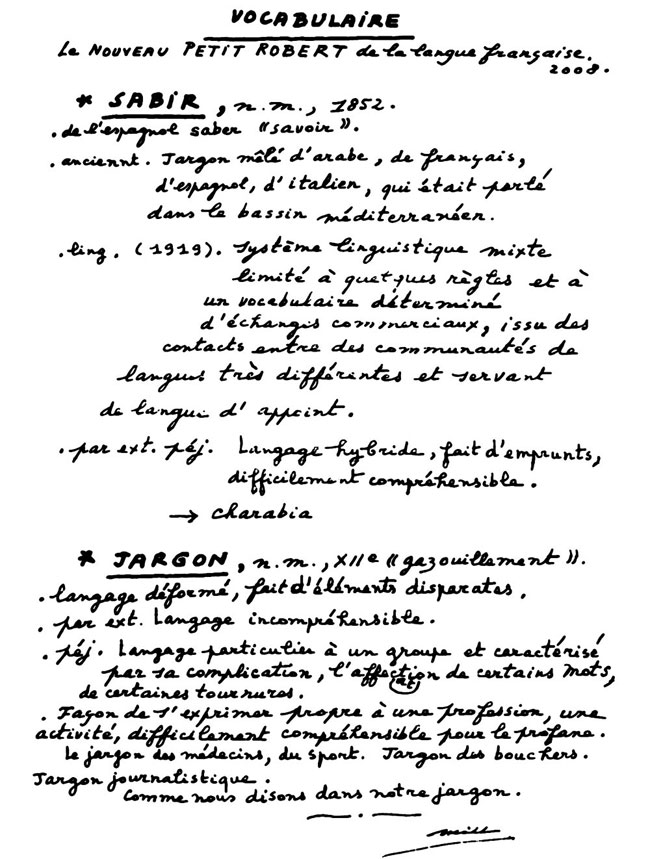 VOCABULAIRE
Le NOUVEAU PETIT ROBERT de la langue française.
2008.
* SABIR, n.m., 1852.
. de l'espagnol saber "savoir".
. anciennt. Jargon mêlé d'arabe, de français,
d'espagnol, d'italien, qui était parlé
dans le bassin méditerranéen.
. ling. (1919). Système linguistique mixte
limité à quelques règles et à
un vocabulaire déterminé
d'échanges commerciaux, issu des
contacts entre des communautés de
langues très différentes et servant
de langue d'appoint.
. par ext. péj. Langage hybride, fait d'emprunts,
difficilement compréhensible.
→ charabia
* JARGON, n.m., XIIe "gazouillement".
. langage déformé, fait d'éléments disparates.
. par ext. Langage incompréhensible.
. péj. Langage particulier à un groupe et caractérisé
par sa complication, l'affection de certains mots,
(at)
de certaines tournures.
. Façon de s'exprimer propre à une profession, une
activité, difficilement compréhensible pour le profane.
Le jargon des médecins, du sport. Jargon des bouchers.
Jargon journalistique.
Comme nous disons dans notre jargon.